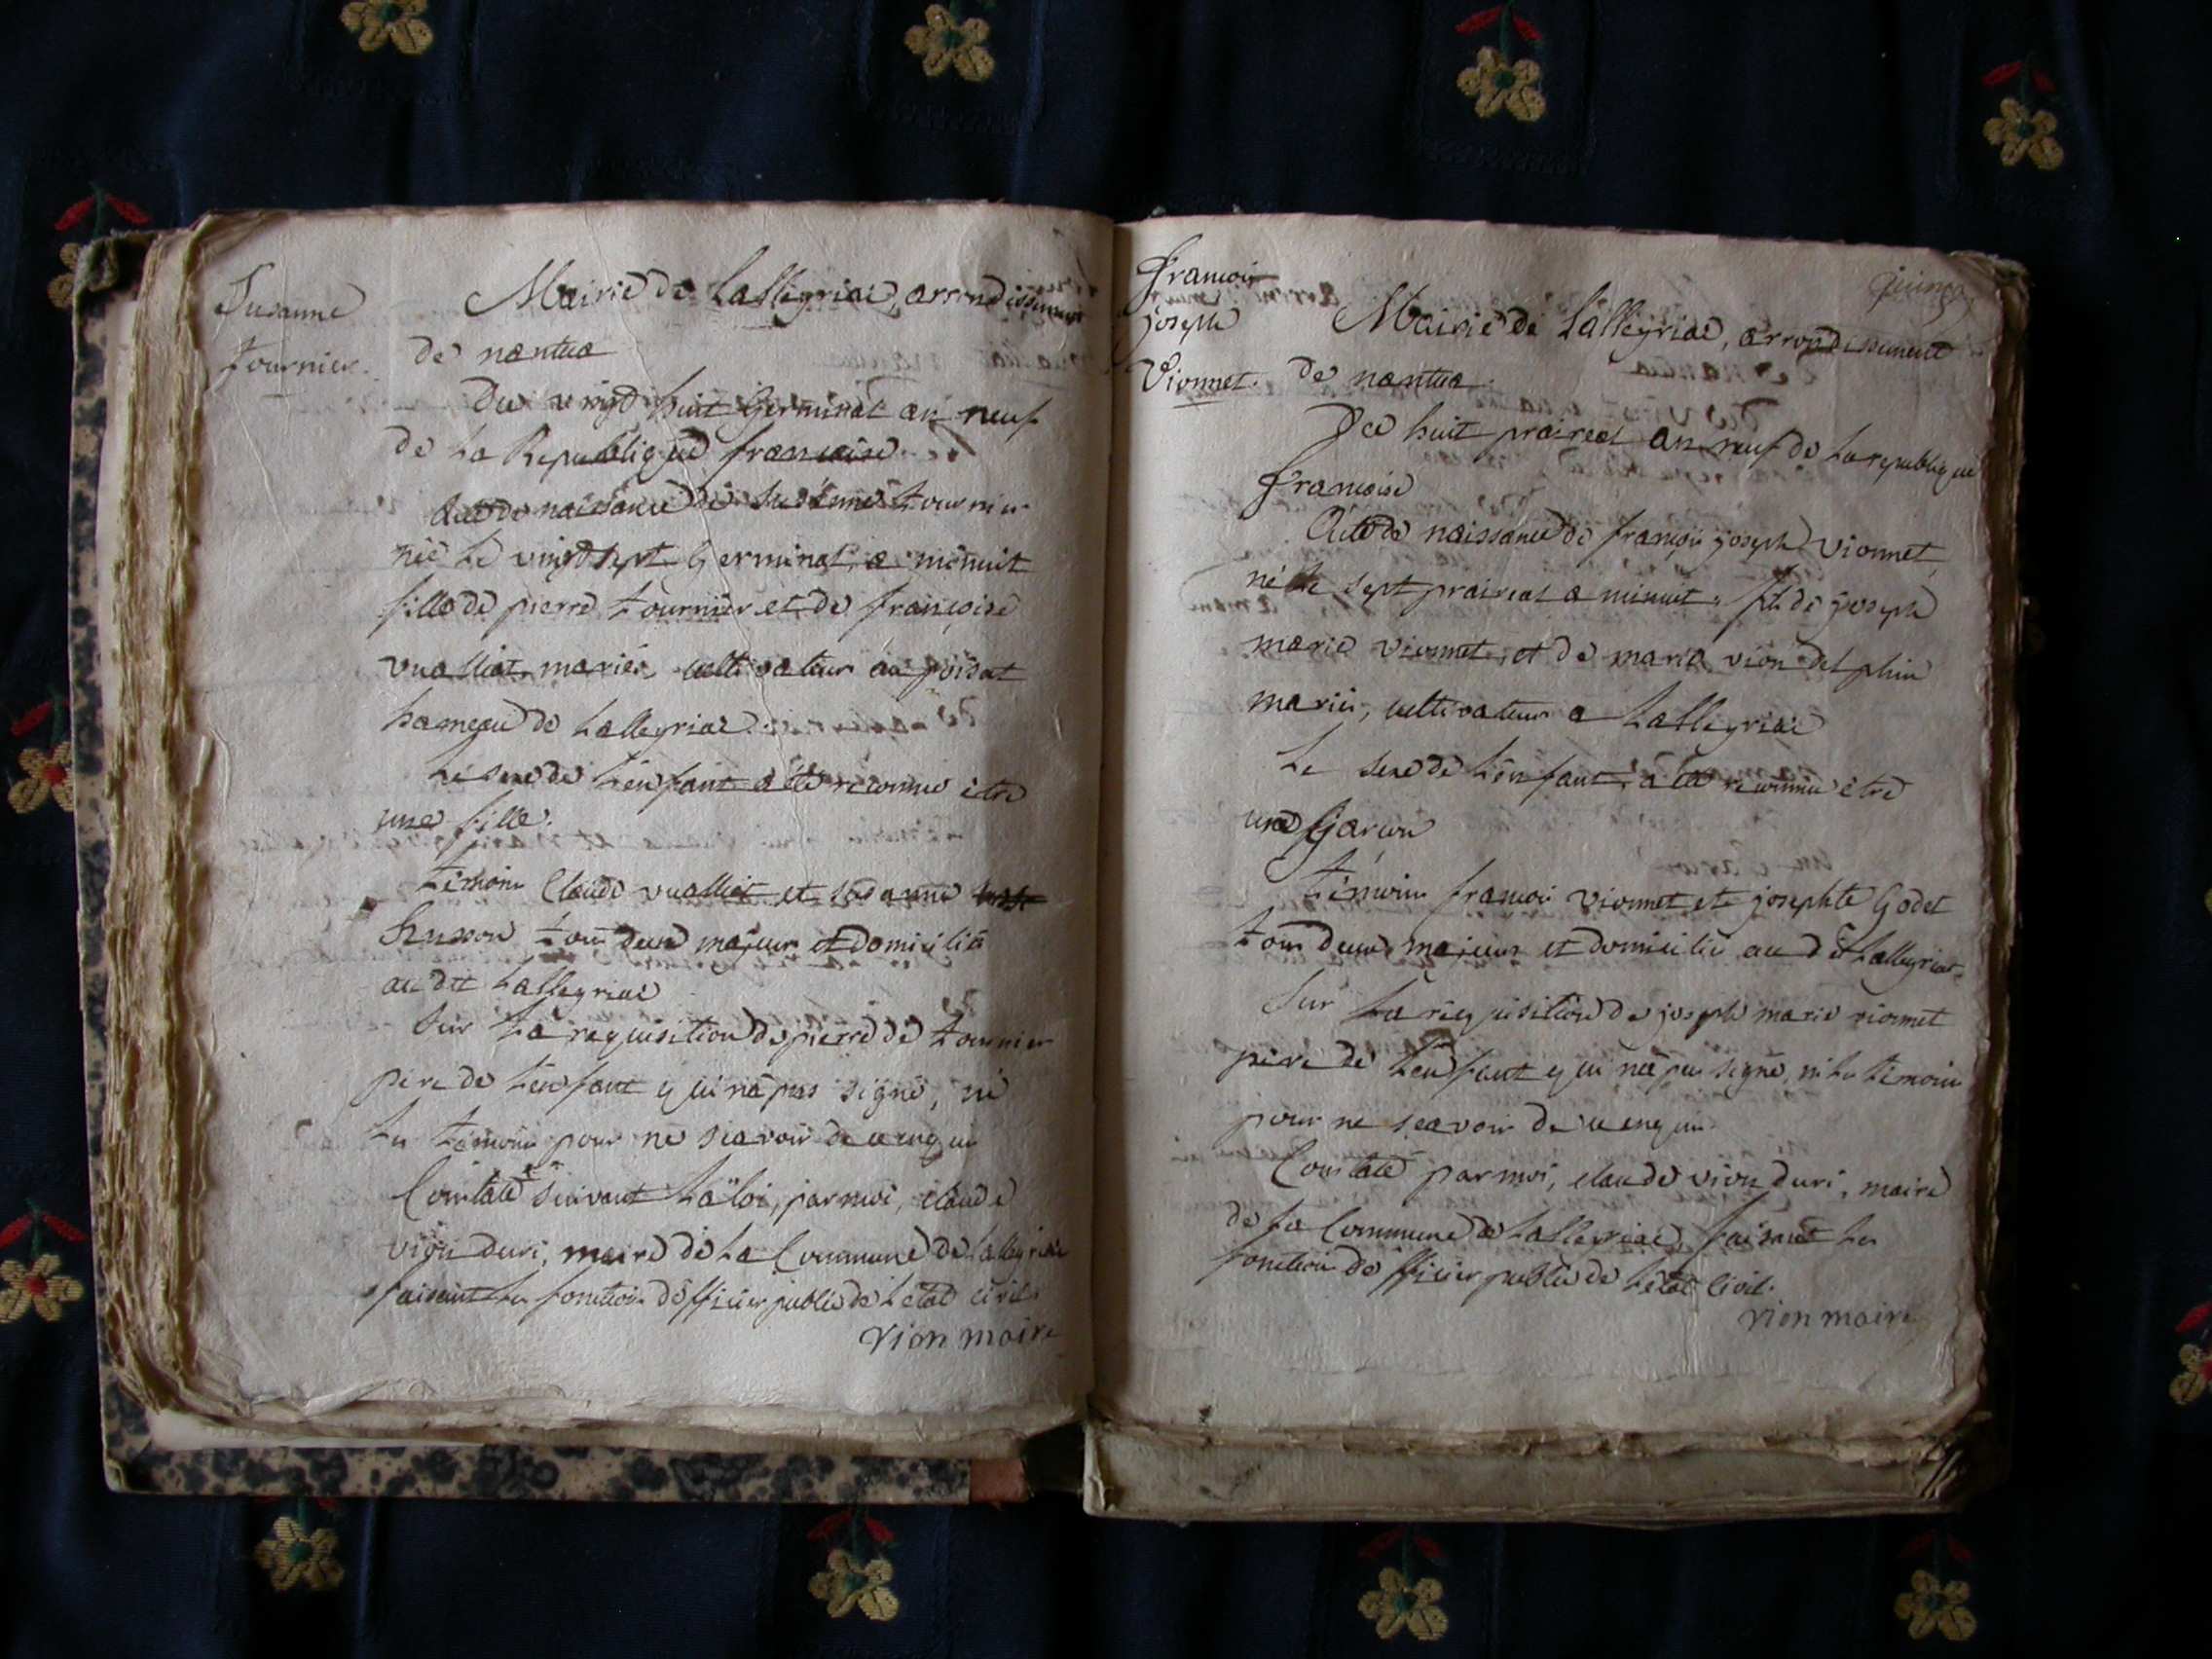 Susanne
tournier.
Mairie de Lalleyriac, arrondissement
de nantua
Du vingt huit Germinal an neuf
de La Republique francoise.
Acte de naissance de Susanne tournier
née Le vingt sept Germinal, a minuit
fille de pierre tournier et de francoise
vualliat mariés, cultivateur au poisat
hameau de Lalleyriac.
Le sexe de L'enfant a été reconnu être
une fille.
témoins Claude vualliat et susanne
Husson tous deux majeurs et domicilié
audit Lalleyriac
Sur La requisition de pierre de tournier
père de L'enfant qui n'a pas signé, ni
Les témoins pour ne scavoir de ce enquis
Constaté suivant La Loi, par moi, claude
vion duri, maire de La Commune de Lalleyriac
faisant Les fonctions d'officier public de L'état civil.
vion maire
francois
joseph
Vionnet.
Mairie de Lalleyriac, arrondissement
de nantua.
Du huit prairéal an neuf de La republique
francoise
Acte de naissance de francois joseph vionnet
né Le sept prairéal a minuit, fils de joseph
marie vionnet, et de marie vion delphin
mariés, cultivateurs a Lalleyriac
Le sexe de L'enfant, a été reconnu être
une Garcon
témoins francois vionnet et josephte Godet
tous deux majeurs et domicilié au dit Lalleyriat.
Sur La riequisition de joseph marie vionnet
père de L'enfant qui n'a pas signé, ni Les témoins
pour ne scavoir de ce enquis
Constaté par moi, claude vion duri, maire
de La Commune de Lalleyriac, faisant Les
fonctions d'officier public de L'état Civil.
vion maire